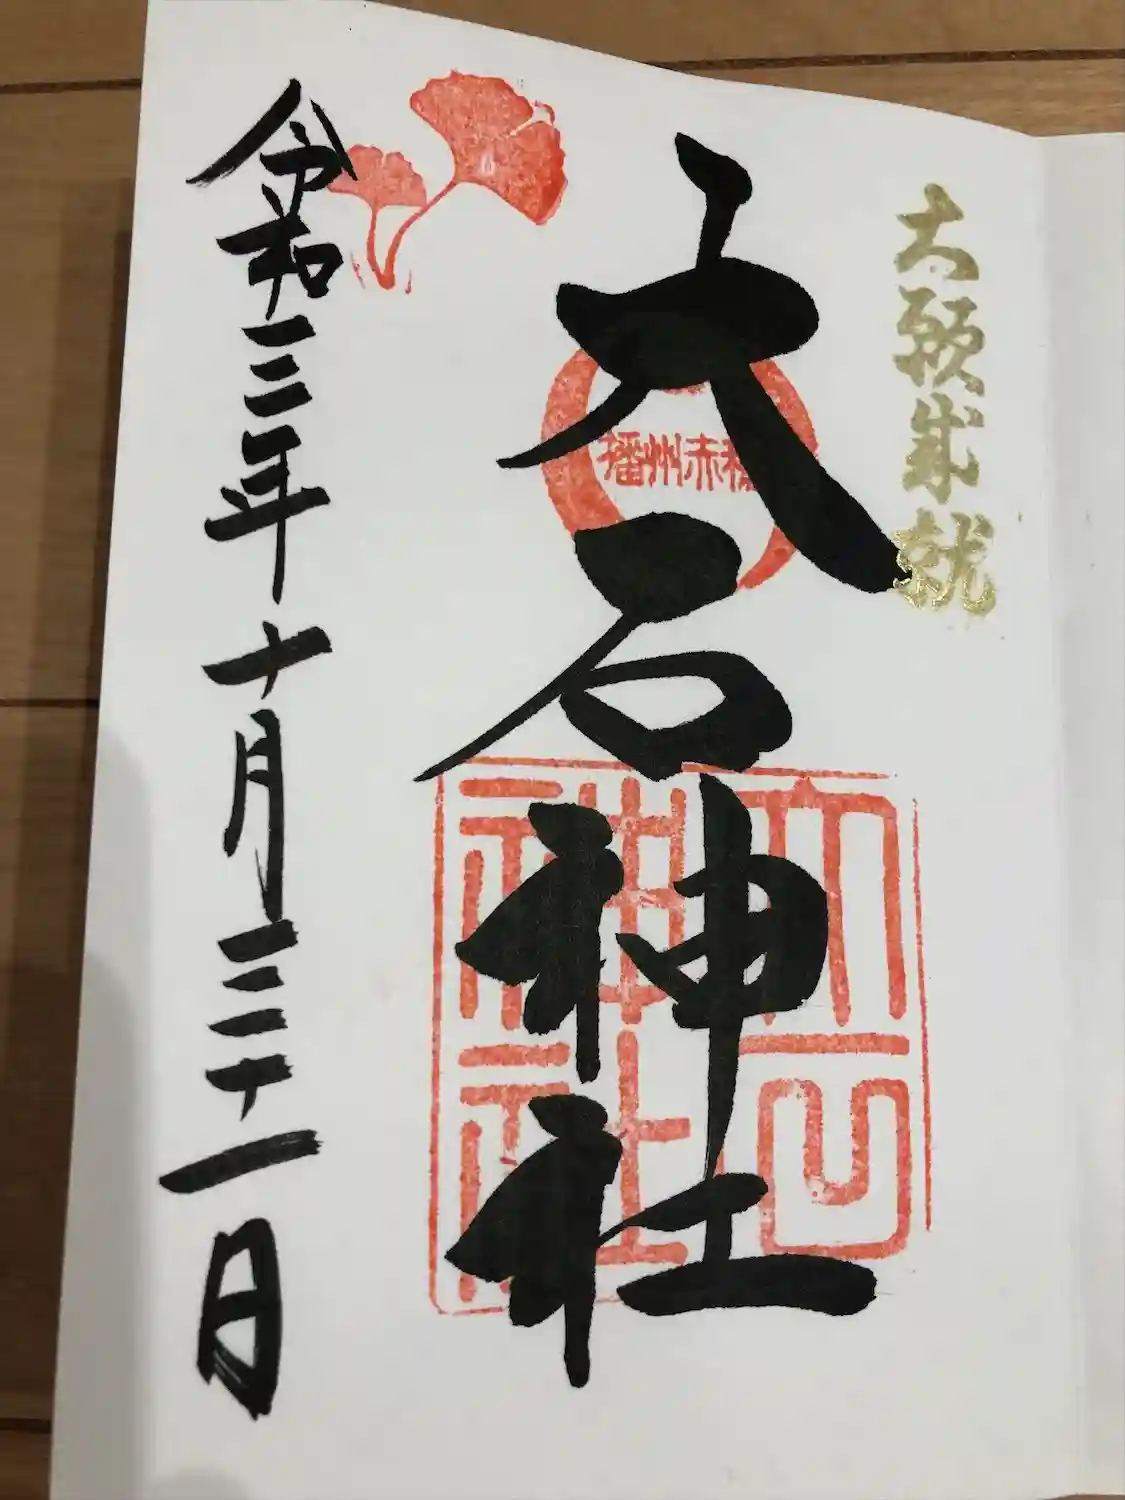 大願成就
大石神社
播州赤穂
大石神社
令和三年十月三十一日